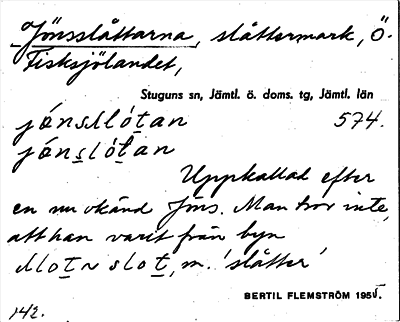 Jönsslåttarna, slåttermark, Ö.
Fisksjölandet,
Stuguns sn, Jämtl. ö. doms. tg, Jämtl. län
574.
Uppkallad efter
en nu okänd Jöns. Man tror inte,
att han varit från byn
slot, m. 'slåtter'
BERTIL FLEMSTRÖM 1955.
142.